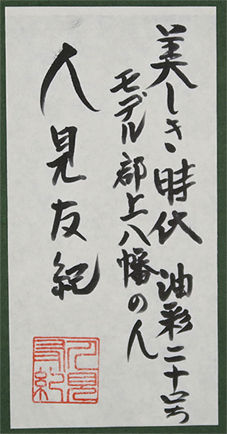 美しき時代 油彩二十号
モデル 郡上八幡の人
人見友紀
人見友紀